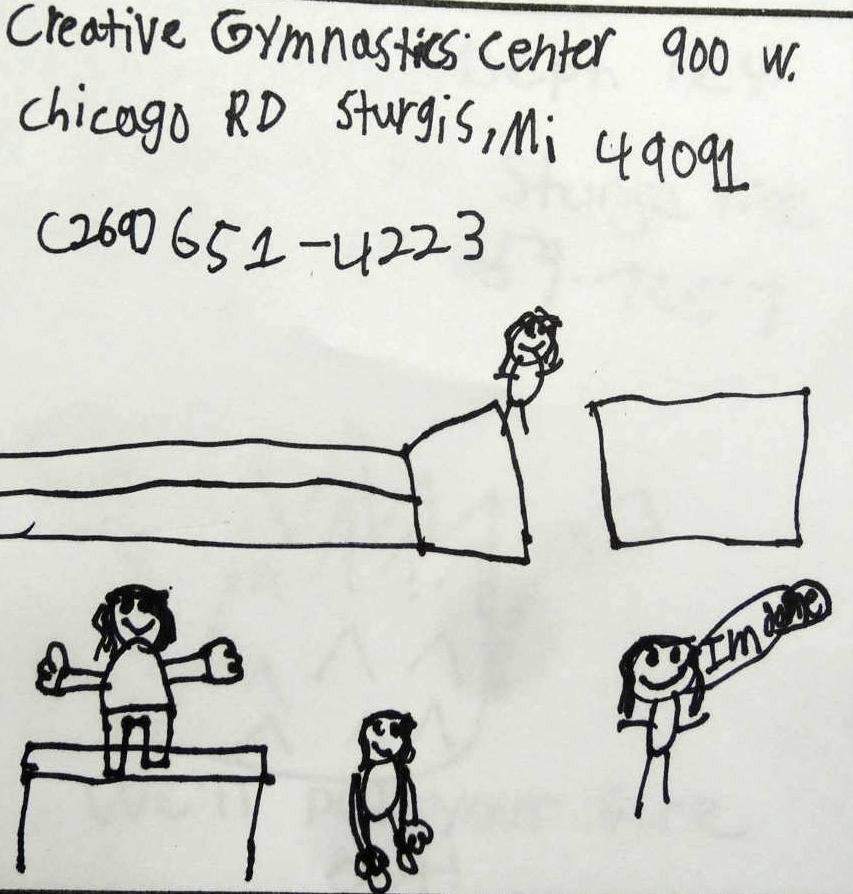 Creative Gymnastics Center 900 W.
Chicago RD Sturgis, Mi 49091
(269) 651-4223
Im done